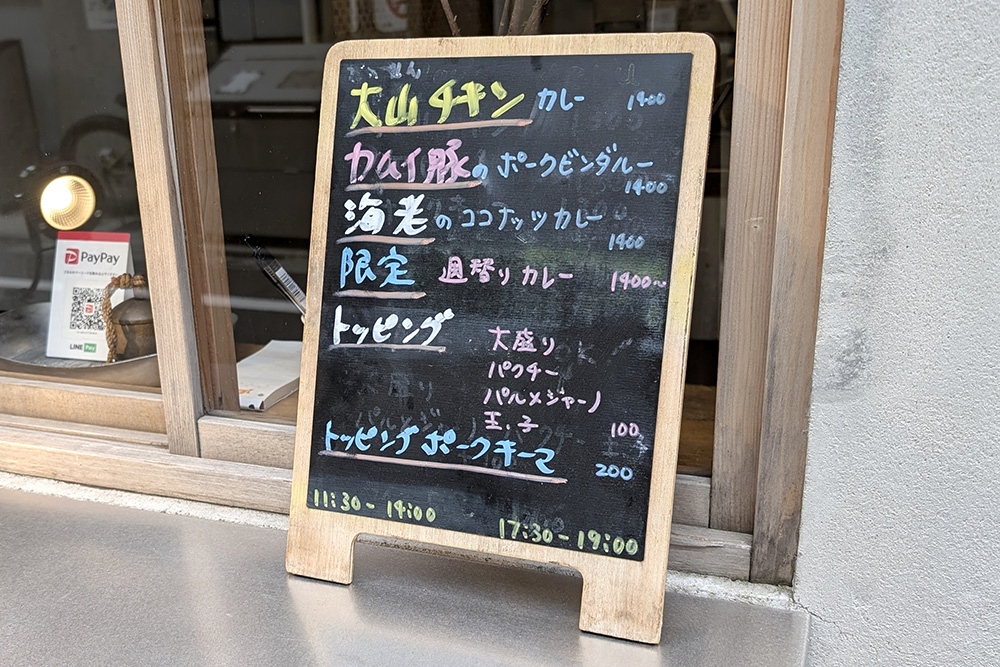 大山チキンカレー 1400
カムイ豚のポークビンダルー
1400
海老のココナッツカレー
1400
限定 週替りカレー 1400〜
トッピング
大盛り
パクチー
パルメジャーノ
玉子 100
トッピングポークキーマ
200
11:30-14:00
17:30-19:00
PayPay
LINE Pay